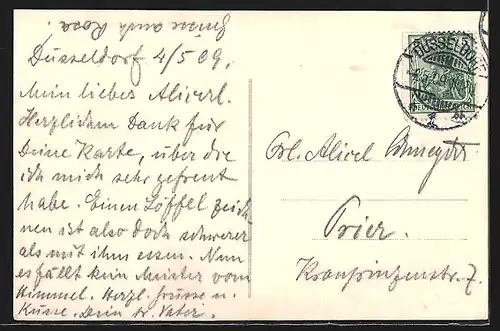 Grüsse auch Rosa.
Düsseldorf 4/5 09.
Mein liebes
Herzlichen Dank für
Deine Karte, über die
ich mich sehr gefreut
habe. Einen Löffel zeich
nen ist also doch schwerer
als mit ihm essen. Nun
es fällt kein Meister vom
Himmel. Herzl. Grüsse u.
Küsse. Dein tr. Vater.
DÜSSELDORF
Frl.
Trier.
Kronprinzenstr. 7.